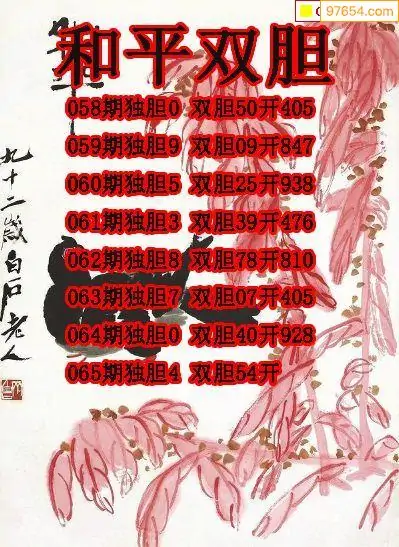 97654.com
和平双胆
058期独胆0 双胆50开405
059期独胆9 双胆09开847
060期独胆5 双胆25开938
061期独胆3 双胆39开476
062期独胆8 双胆78开810
063期独胆7 双胆07开405
064期独胆0 双胆40开928
065期独胆4 双胆54开
九十二歲白石老人